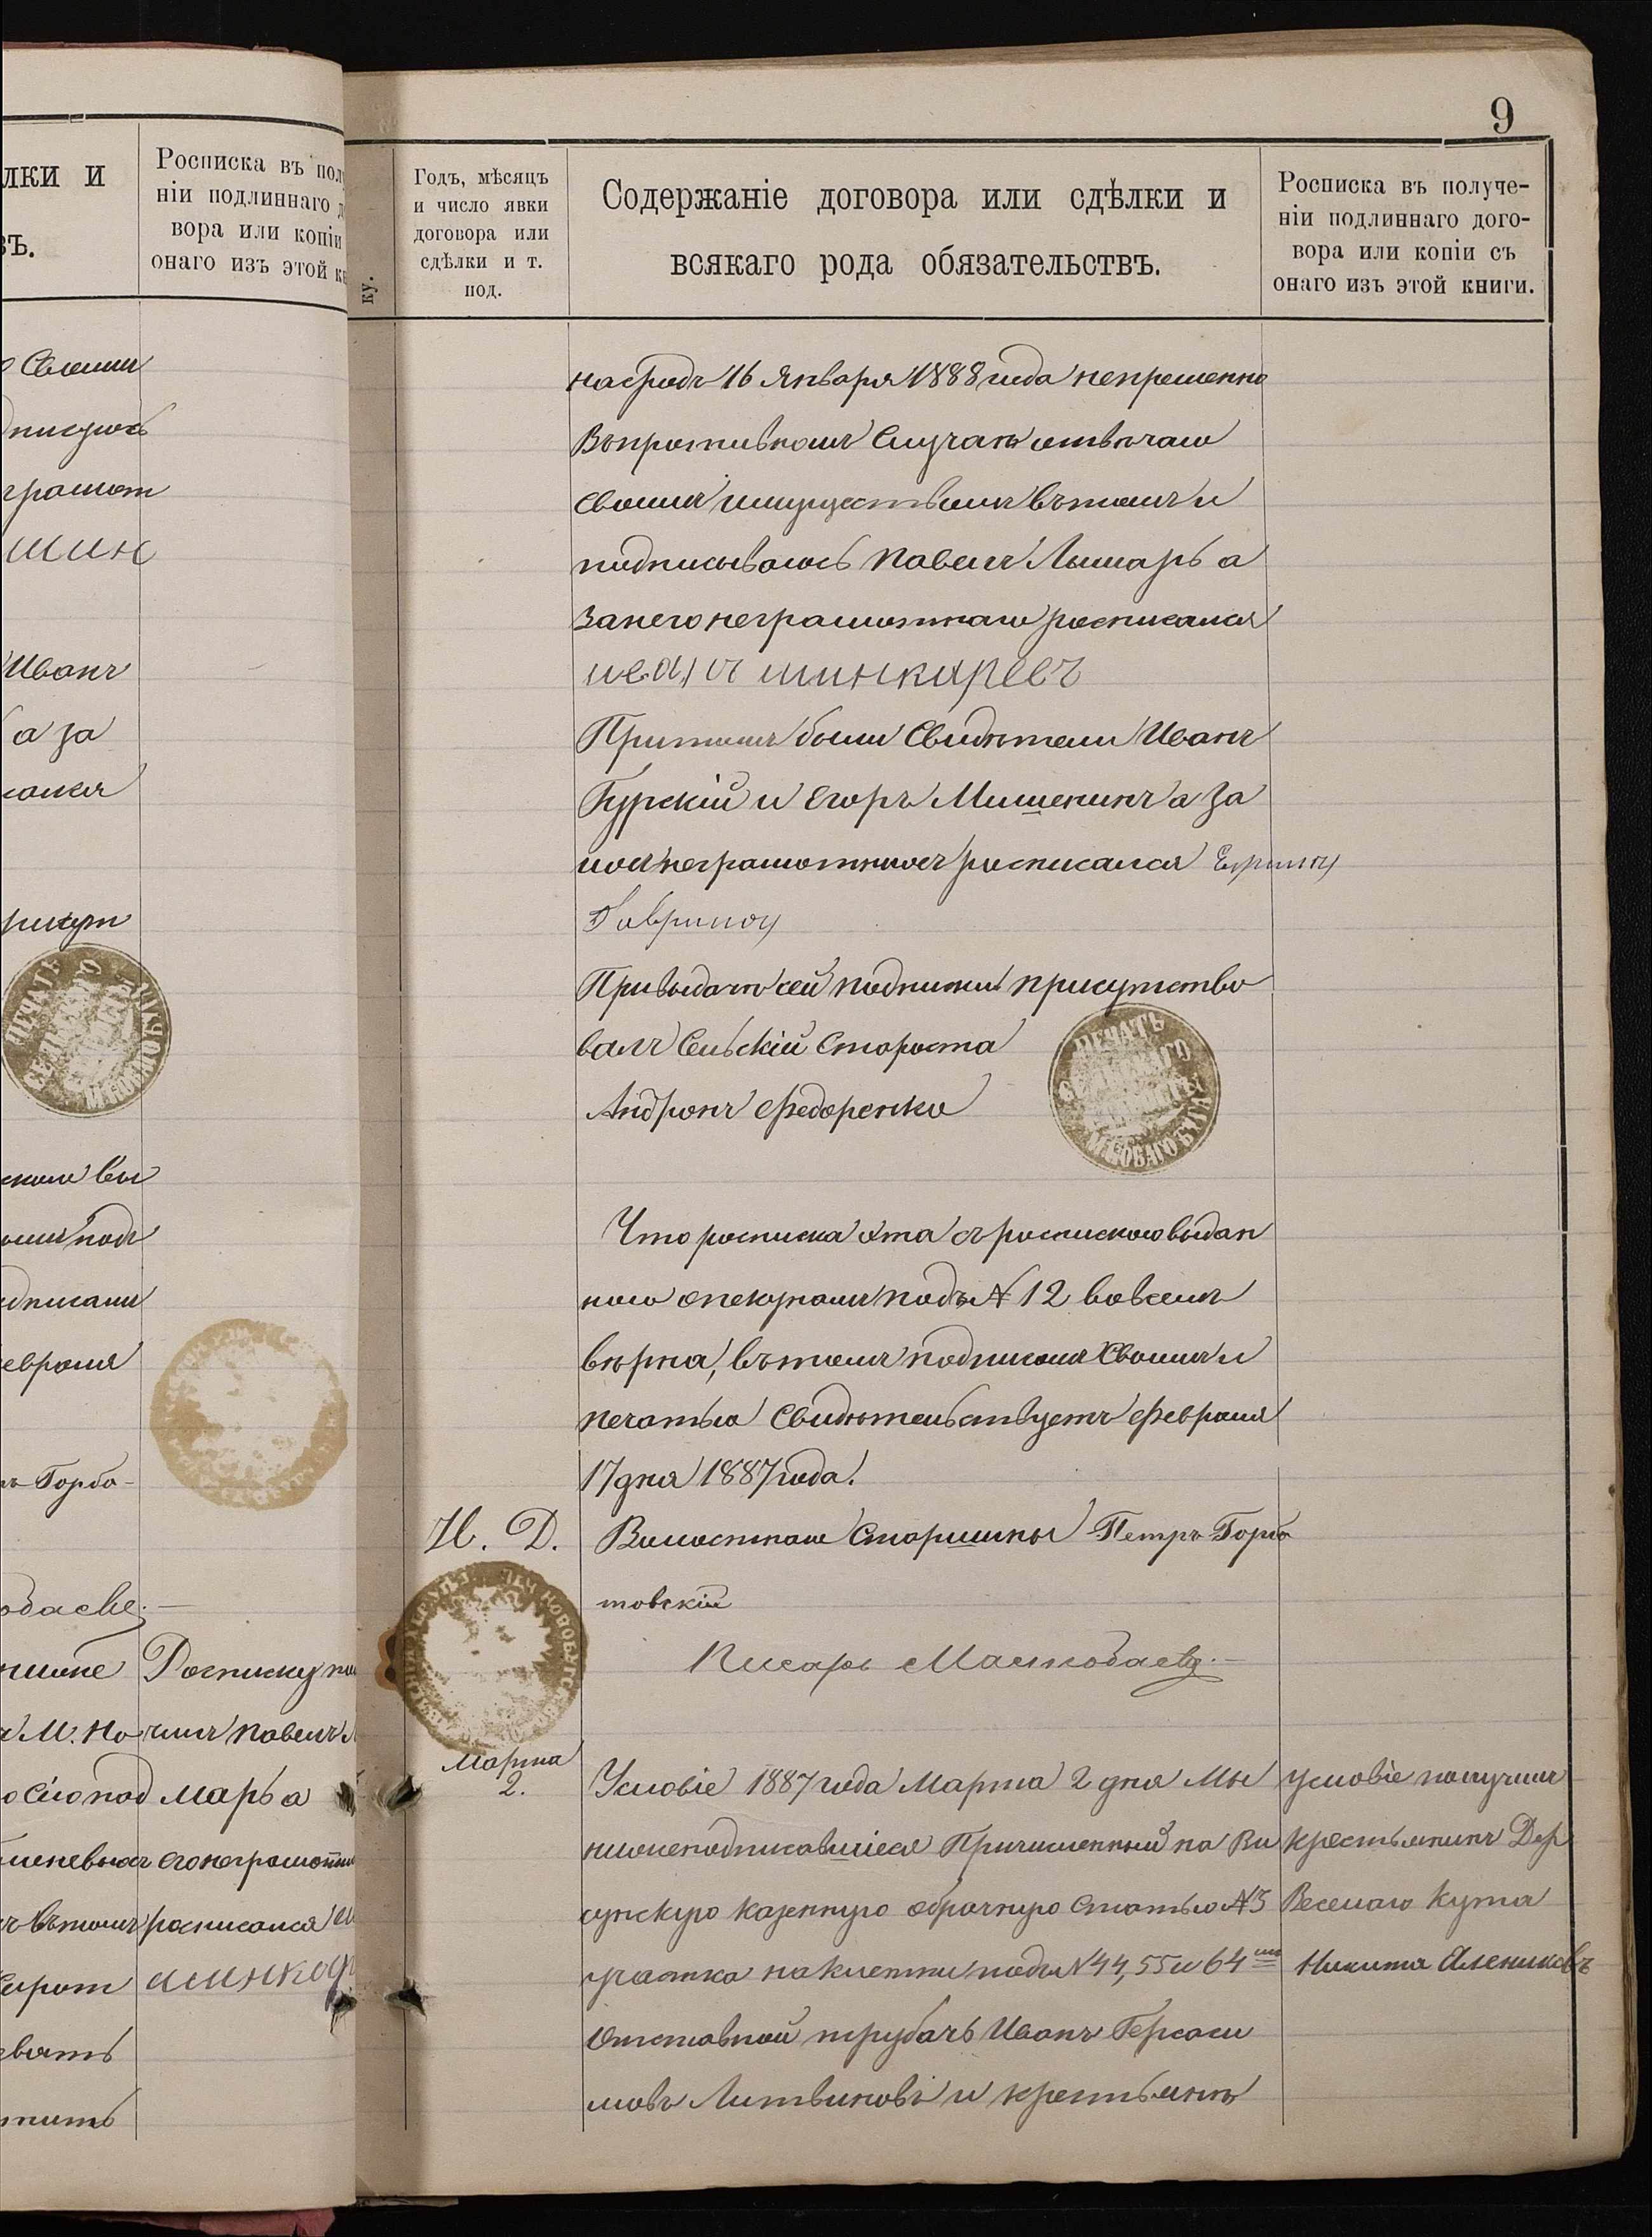 лки и
въ.
Росписка въ пол
ніи подлиннаго д
вора или копіи
онаго изъ этой к
9
ку.
Годъ, мѣсяцъ
и число явки
договора или
сдѣлки и т.
под.
Содержаніе договора или сдѣлки и
всякаго рода обязательствъ.
Росписка въ получе-
ніи подлиннаго дого-
вора или копіи съ
онаго изъ этой книги.
грамот
шин
Иванъ
а за
на срокъ 16 Января 1888 года непременно
Въ противномъ Случаѣ отвѣчаю
Своимъ имуществомъ въ томъ и
подписываюсь Павелъ Лымарь а
За него неграмотнаго росписался
шинкаревъ
При томъ были Свидѣтели Иванъ
Гурскій и Егоръ Мишенинъ а за
неграмотныхъ росписался
Гаврилоу
При выдачѣ сей подписки присутство
валъ Сельскій Староста
Андронъ Федоренко
ПЕЧАТЬ
Что росписка эта съ роспискою выдан
ною опекунамъ подъ № 12 во всемъ
вѣрна, въ томъ подписомъ Своимъ и
печатью Свидѣтельствуетъ Февраля
17 дня 1887 года.
И. Д. Волостнаго Старшины Петръ Горба
товскій
Писарь
Марта
2.
Условіе 1887 года Марта 2 дня Мы
нижеподписавшіеся Причисленный на Ви
сунскую казенную оброчную Статью №3
участка на клетки подъ №44, 55 и 64
Отставной трубачъ Иванъ Гераси
мовъ Литвиновъ и крестьянъ
условіе получилъ
крестьянинъ Дер
Веселаго Кута
Никита Алениковъ
Росписку по
чилъ Павелъ
марь а
его неграмотн
росписался
шинкар